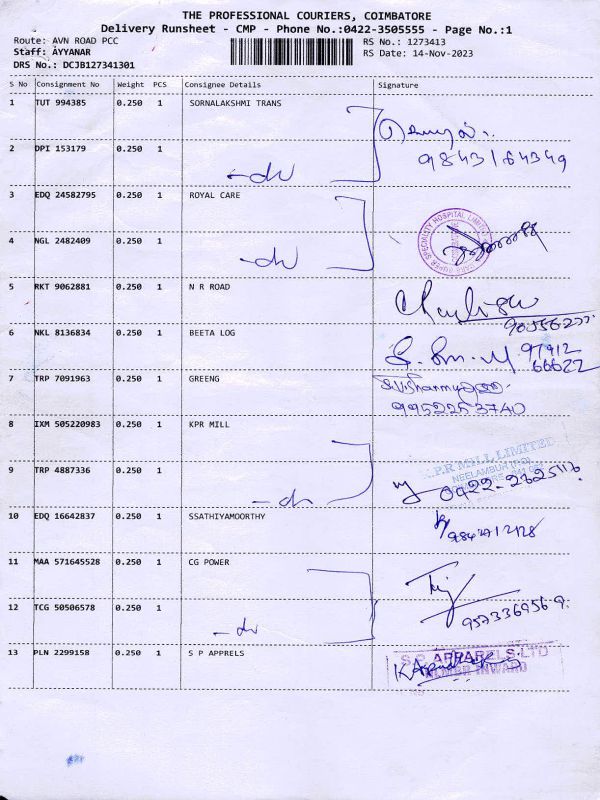 THE PROFESSIONAL COURIERS, COIMBATORE
Delivery Runsheet - CMP - Phone No.:0422-3505555 - Page No.:1
Route: AVN ROAD PCC
RS No.: 1273413
Staff: AYYANAR
RS Date: 14-Nov-2023
DRS No.: DCJB127341301
S No Consignment No Weight PCS Consignee Details Signature
1 TUT 994385 0.250 1 SORNALAKSHMI TRANS
2 DPI 153179 0.250 1 -do 9843164349
3 EDQ 24582795 0.250 1 ROYAL CARE
4 NGL 2482409 0.250 1 -do
5 RKT 9062881 0.250 1 N R ROAD
6 NKL 8136834 0.250 1 BEETA LOG 97912
66622
7 TRP 7091963 0.250 1 GREENG
9952253740
8 IXM 505220983 0.250 1 KPR MILL
K.P.R MILL LIMITED
NEELAMBUR (P.O)
9 TRP 4887336 0.250 1 -do
10 EDQ 16642837 0.250 1 SSATHIYAMOORTHY
11 MAA 571645528 0.250 1 CG POWER
12 TCG 50506578 0.250 1 -do
13 PLN 2299158 0.250 1 S P APPRELS S.P. APPARELS LTD
INWARD